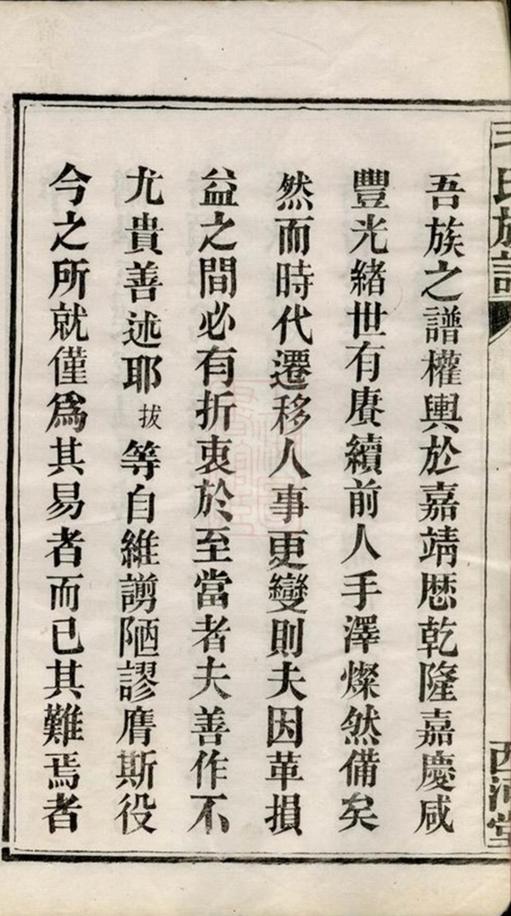 毛氏族譜
西河堂
吾族之譜權輿於嘉靖歴乾隆嘉慶咸
豐光緒世有賡續前人手澤燦然備矣
然而時代遷移人事更變則夫因革損
益之間必有折衷於至當者夫善作不
尤貴善述耶拔等自維謭陋謬膺斯役
今之所就僅爲其易者而已其難焉者